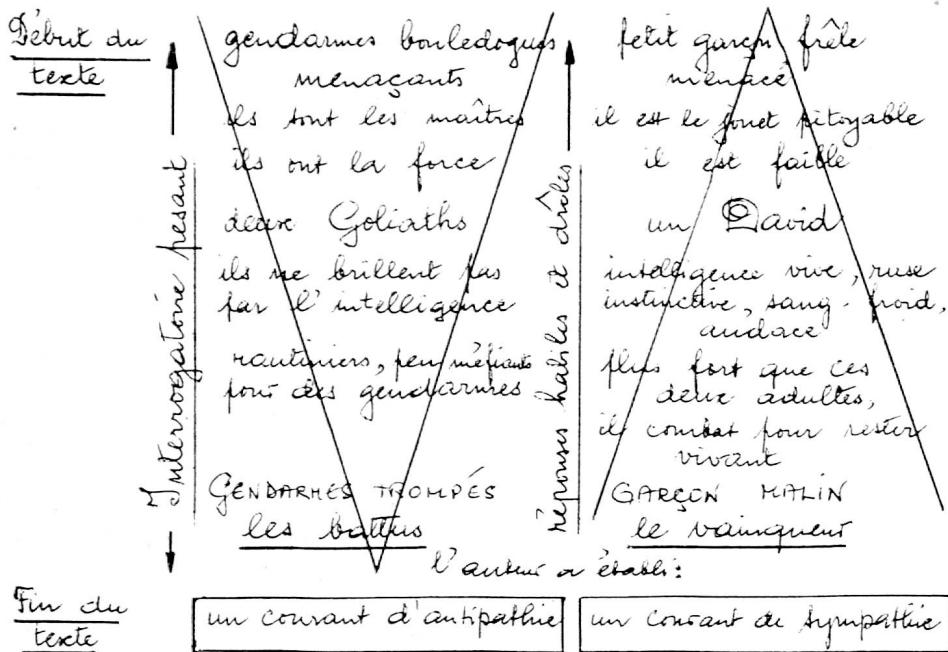 Début du
texte
Interrogatoire pesant
gendarmes bouledogues
menaçants
ils sont les maîtres
ils ont la force
deux Goliaths
ils ne brillent pas
par l'intelligence
routiniers, peu méfiants
pour des gendarmes
GENDARMES TROMPÉS
les battus
réponses habiles et drôles
petit garçon frêle
menacé
il est le jouet pitoyable
il est faible
un David
intelligence vive, ruse
instinctive, sang-froid,
audace
plus fort que ces
deux adultes,
il combat pour rester
vivant
GARÇON MALIN
le vainqueur
l'auteur a établi :
Fin du
texte
un courant d'antipathie
un courant de sympathie